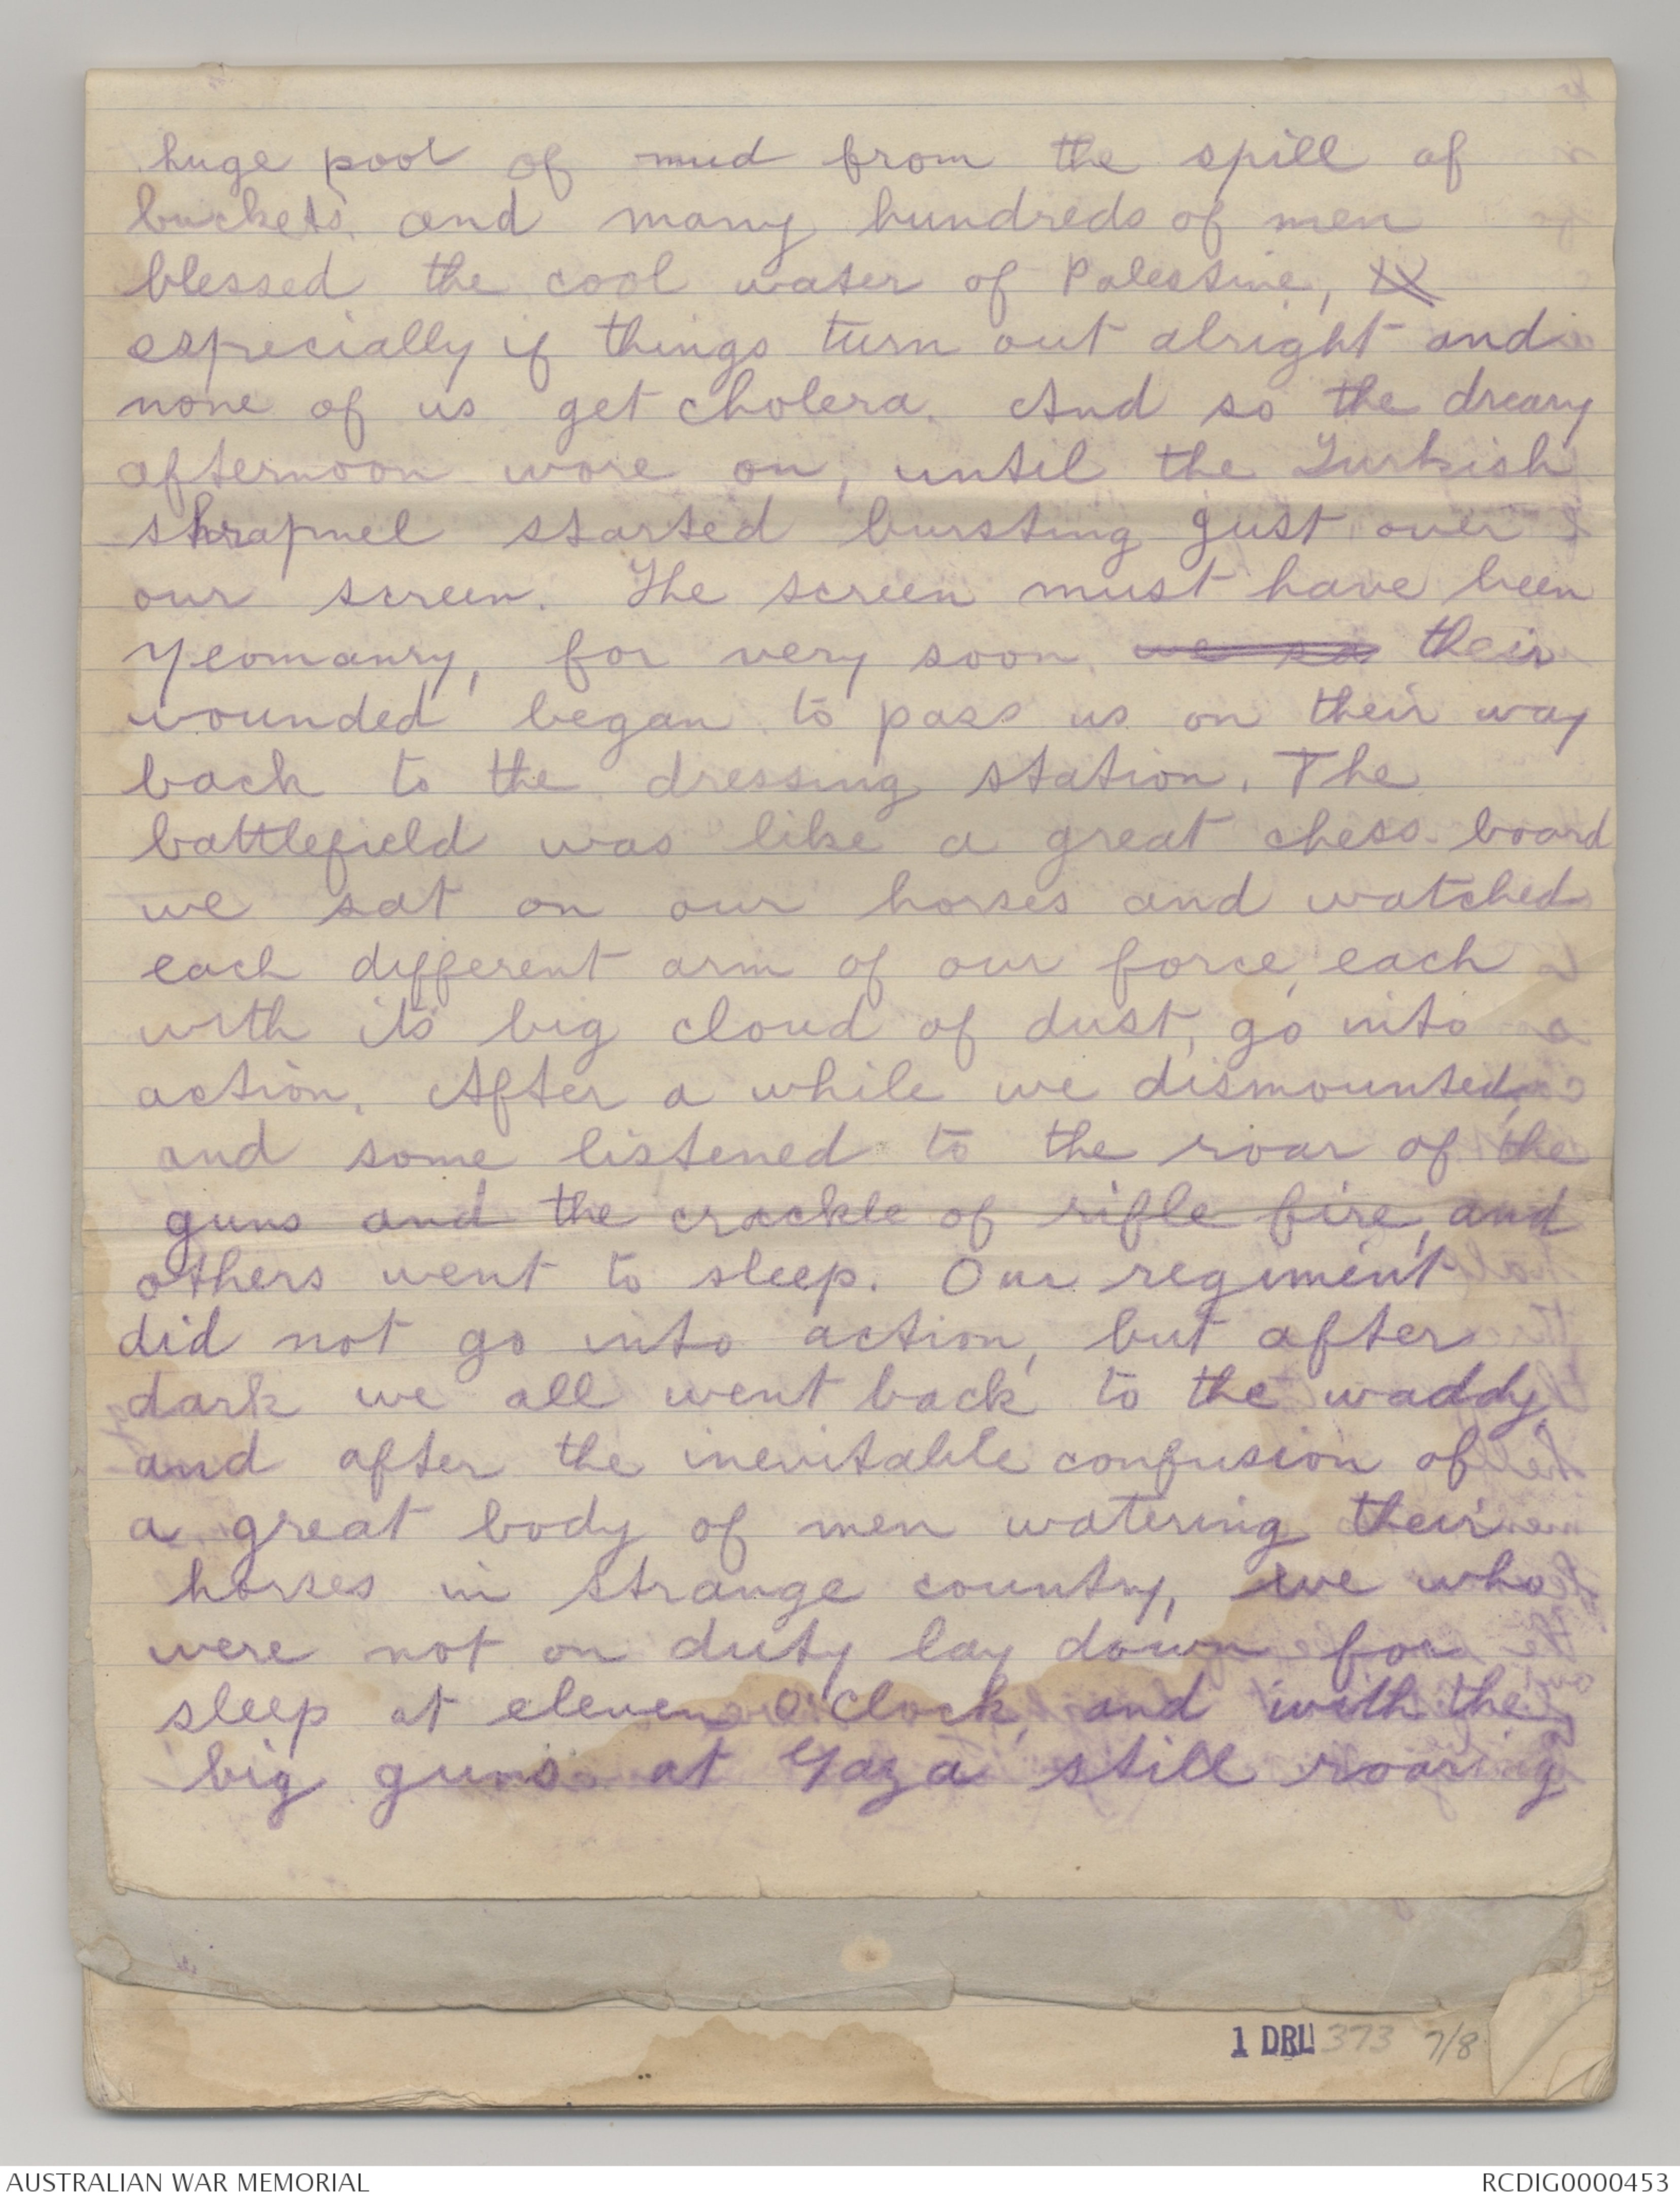 huge pool of mud from the spill of
buckets, and many hundreds of men
blessed the cool water of Palestine,
especially if things turn out alright and
none of us get cholera. And so the dreary
afternoon wore on, until the Turkish
shrapnel started bursting just over
our screen. The screen must have been
Yeomanry, for very soon we sa their
wounded began to pass us on their way
back to the dressing station. The
battlefield was like a great chess-board
we sat on our horses and watched
each different arm of our force, each
with its big cloud of dust, go into
action. After a while we dismounted,
and some listened to the roar of the
guns and the crackle of rifle fire, and
others went to sleep. Our regiment
did not go into action, but after
dark we all went back to the waddy,
and after the inevitable confusion of
a great body of men watering their
horses in strange country, we who
were not on duty lay down for
sleep at eleven o'clock, and with the
big guns at Gaza still roaring
1 DRL 373 7/8
AUSTRALIAN WAR MEMORIAL
RCDIG0000453